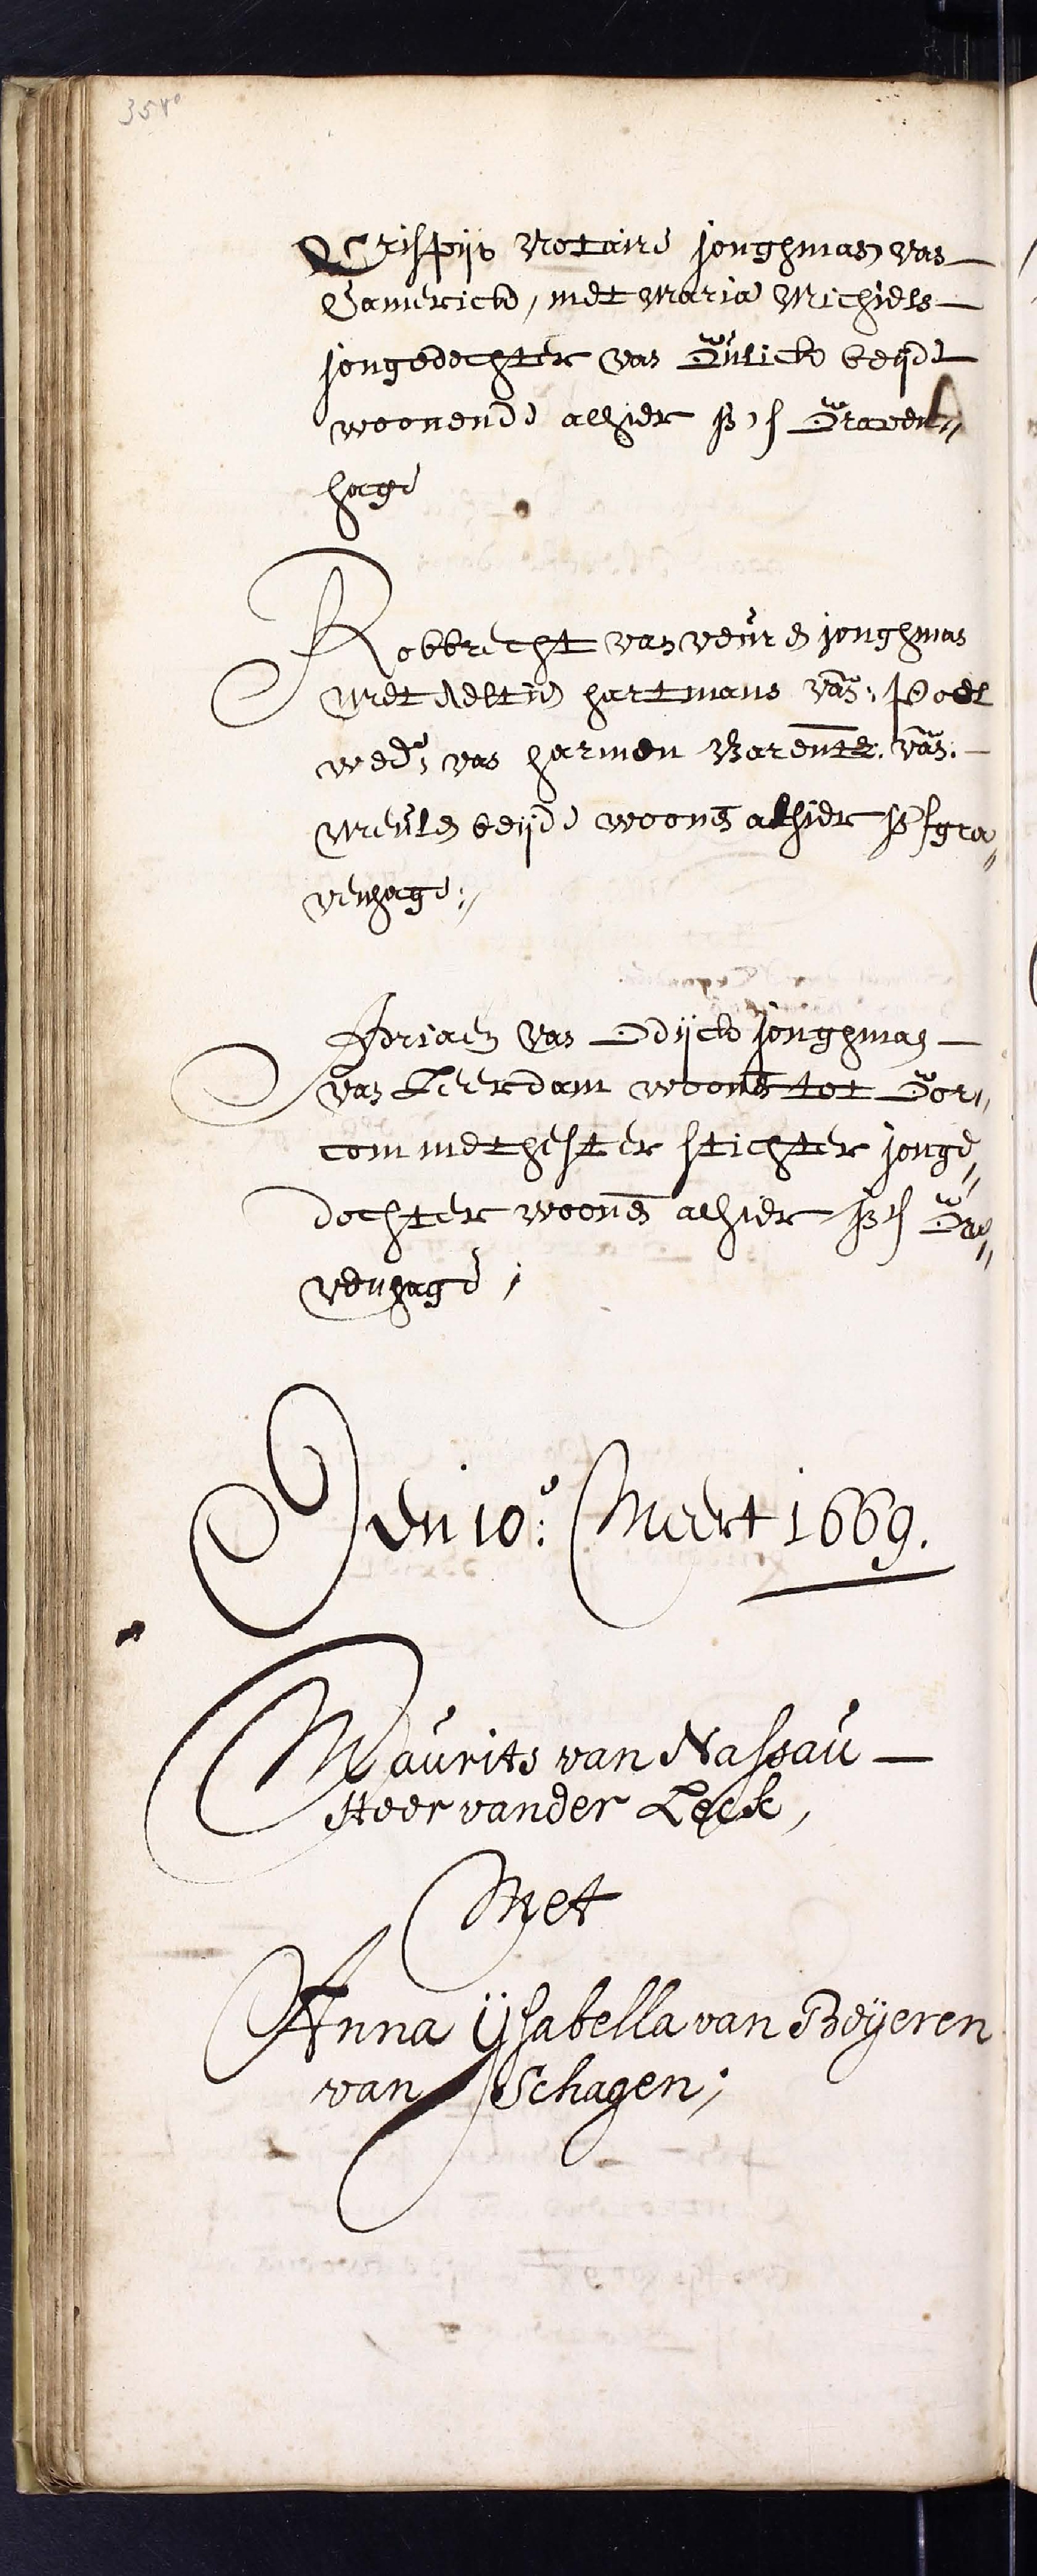 35vo
Crispijn Notaire jonghman van
Camerick, met Maria Michiels
jongedochter van Gulick beijde
woonende alhier in s Graven„
hage
Robbrecht van veuren jonghman
met Aeltie hartmans van: Poel
wede: van harmen Barentz: van:
Meulen beijde woonen alhier in sgra„
venhage;,
Adriaen van Dijck jonghman
van Leerdam woonen tot Gor„
com met hester stichter jonge„
dochter woonen alhier in s Gra„
venhage;
den 10e: Meert 1669.
Maurits van Nassau
Heer vander Leck,
Met
Anna Ÿsabella van Beÿeren
van Schagen;